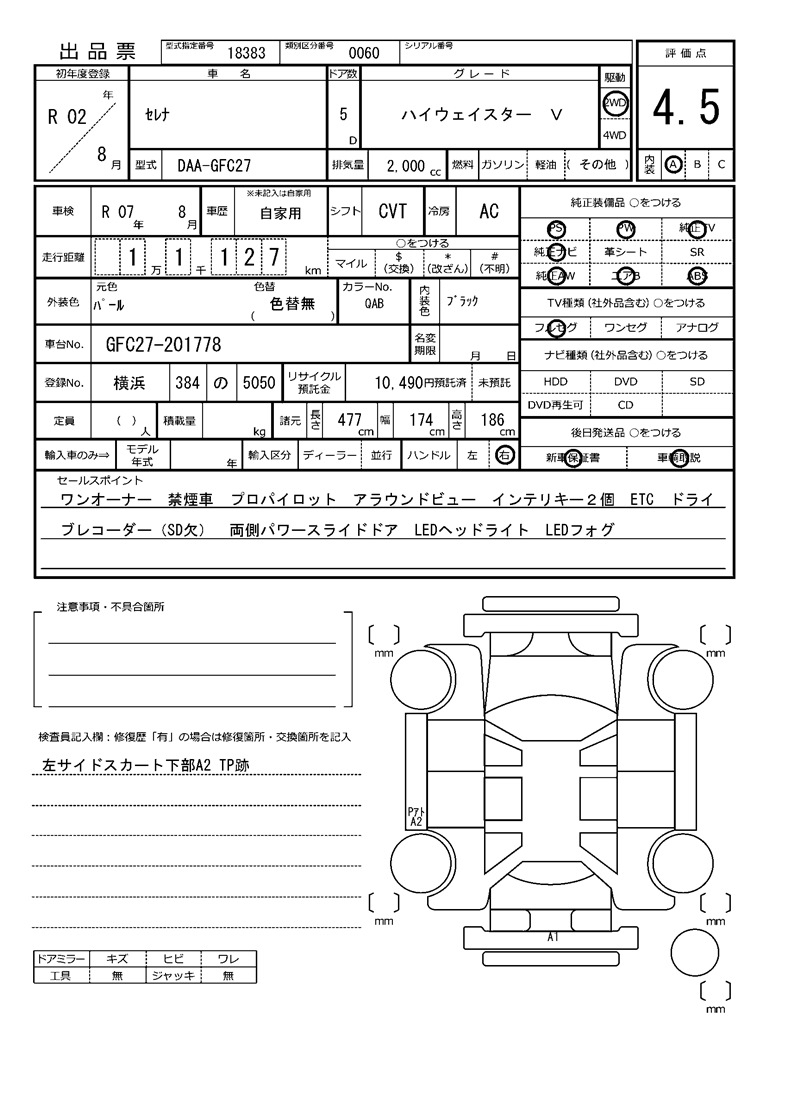 出品票
型式指定番号 18383 類別区分番号 0060 シリアル番号
評価点
初年度登録 車名 ドア数 グレード 駆動
R 02 年 8 月
セレナ
5 D
ハイウェイスター V
2WD
4WD
4.5
型式 DAA-GFC27 排気量 2,000 cc 燃料 ガソリン 軽油 ( その他 )
内装 A B C
車検 R 07 年 8 月 車歴 ※未記入は自家用 自家用 シフト CVT 冷房 AC
走行距離 1 万 1 千 1 2 7 km
○をつける
マイル $(交換) *(改ざん) #(不明)
外装色 元色 パール 色替 ( 色替無 ) カラーNo. QAB 内装色 ブラック
車台No. GFC27-201778 名変期限 月 日
登録No. 横浜 384 の 5050 リサイクル預託金 10,490円預託済 未預託
定員 ( ) 人 積載量 kg 諸元 長さ 477 cm 幅 174 cm 高さ 186 cm
輸入車のみ⇒ モデル年式 年 輸入区分 ディーラー 並行 ハンドル 左 右
純正装備品 ○をつける
PS PW 純正TV
純正ナビ 革シート SR
純正AW エアB ABS
TV種類(社外品含む) ○をつける
フルセグ ワンセグ アナログ
ナビ種類(社外品含む) ○をつける
HDD DVD SD
DVD再生可 CD
後日発送品 ○をつける
新車保証書 車輌取説
セールスポイント
ワンオーナー 禁煙車 プロパイロット アラウンドビュー インテリキー2個 ETC ドライ
ブレコーダー(SD欠) 両側パワースライドドア LEDヘッドライト LEDフォグ
注意事項・不具合箇所
検査員記入欄：修復歴「有」の場合は修復箇所・交換箇所を記入
左サイドスカート下部A2 TP跡
mm
mm
Pアト
A2
mm
mm
A1
mm
ドアミラー キズ ヒビ ワレ
工具 無 ジャッキ 無